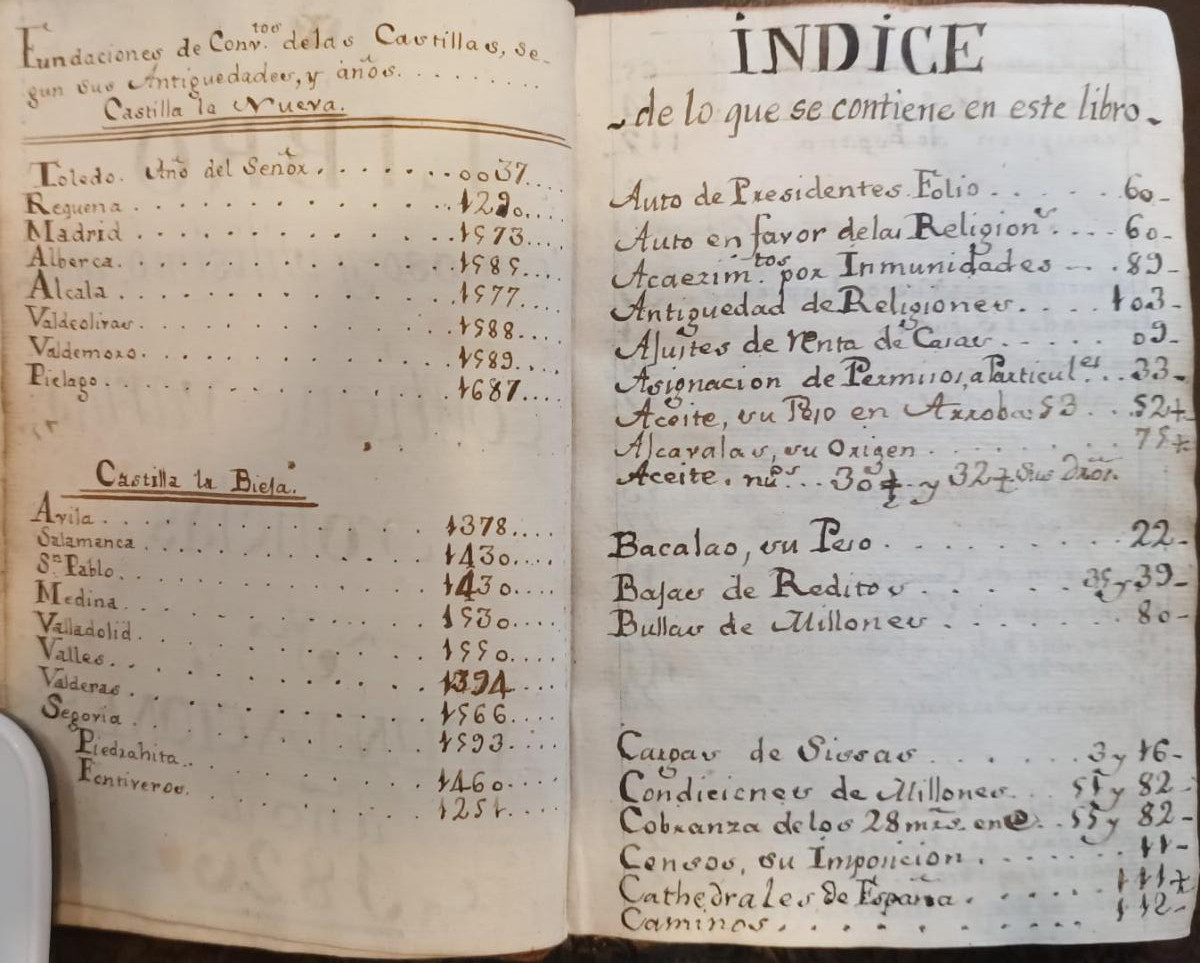 Fundaciones de Conv.tos de las Castillas, se-
gun sus Antiguedades, y años. . . . . . . .
Castilla la Nueva.
Toledo. Año del Señor. . . . . . . 0037. . . .
Requena . . . . . . . . . . . . 1290. . . .
Madrid . . . . . . . . . . . . 1573. . . .
Alberca. . . . . . . . . . . . 1585. . . .
Alcala . . . . . . . . . . . . 1577. . . .
Valdeolivas . . . . . . . . . . . 1588. . . .
Valdemoro. . . . . . . . . . . . 1589. . . .
Pielago. . . . . . . . . . . . 1687. . . .
Castilla la Bieja.
Avila. . . . . . . . . . . . 1378. . . .
Salamanca . . . . . . . . . . . 1430. . . .
Sn Pablo. . . . . . . . . . . . 1430. . . .
Medina . . . . . . . . . . . . 1530. . . .
Valladolid. . . . . . . . . . . 1550. . . .
Valles. . . . . . . . . . . . 1394. . . .
Valderas. . . . . . . . . . . . 1566. . . .
Segovia . . . . . . . . . . . . 1593. . . .
Piedrahita. . . . . . . . . . . 1460. . . .
Fontiveros. . . . . . . . . . . 1251. . . .
ÍNDÍCE
de lo que se contiene en este libro.
Auto de Presidentes. Folio . . . . . 60-
Auto en favor de las Religions. . . . 60-
Acaezim.tos por Inmunidades - . . 89-
Antiguedad de Religiones. . . . . 103-
Ajustes de renta de Casas. . . . . 09-
Asignacion de Permisos, a Particul.es . . 33-
Aceite, su Peso en Arrobas 53 . . . 52+
Alcavalas, su Origen . . . . . . . 75+
Aceite. nu.s . . 30+ y 32+ sus
Bacalao, su Peso . . . . . . . . 22-
Bajas de Reditos . . . . . . . 35 y 39-
Bullas de Millones . . . . . . . 80-
Cargas de Sissas . . . . . . 3 y 16-
Condiciones de Millones. . . 51 y 82-
Cobranza de los 28 mrs. en @. . . 55 y 82-
Censos, su Imposicion . . . . . 11-
Cathedrales de España. . . . . . 111+
Caminos. . . . . . . . . 112-